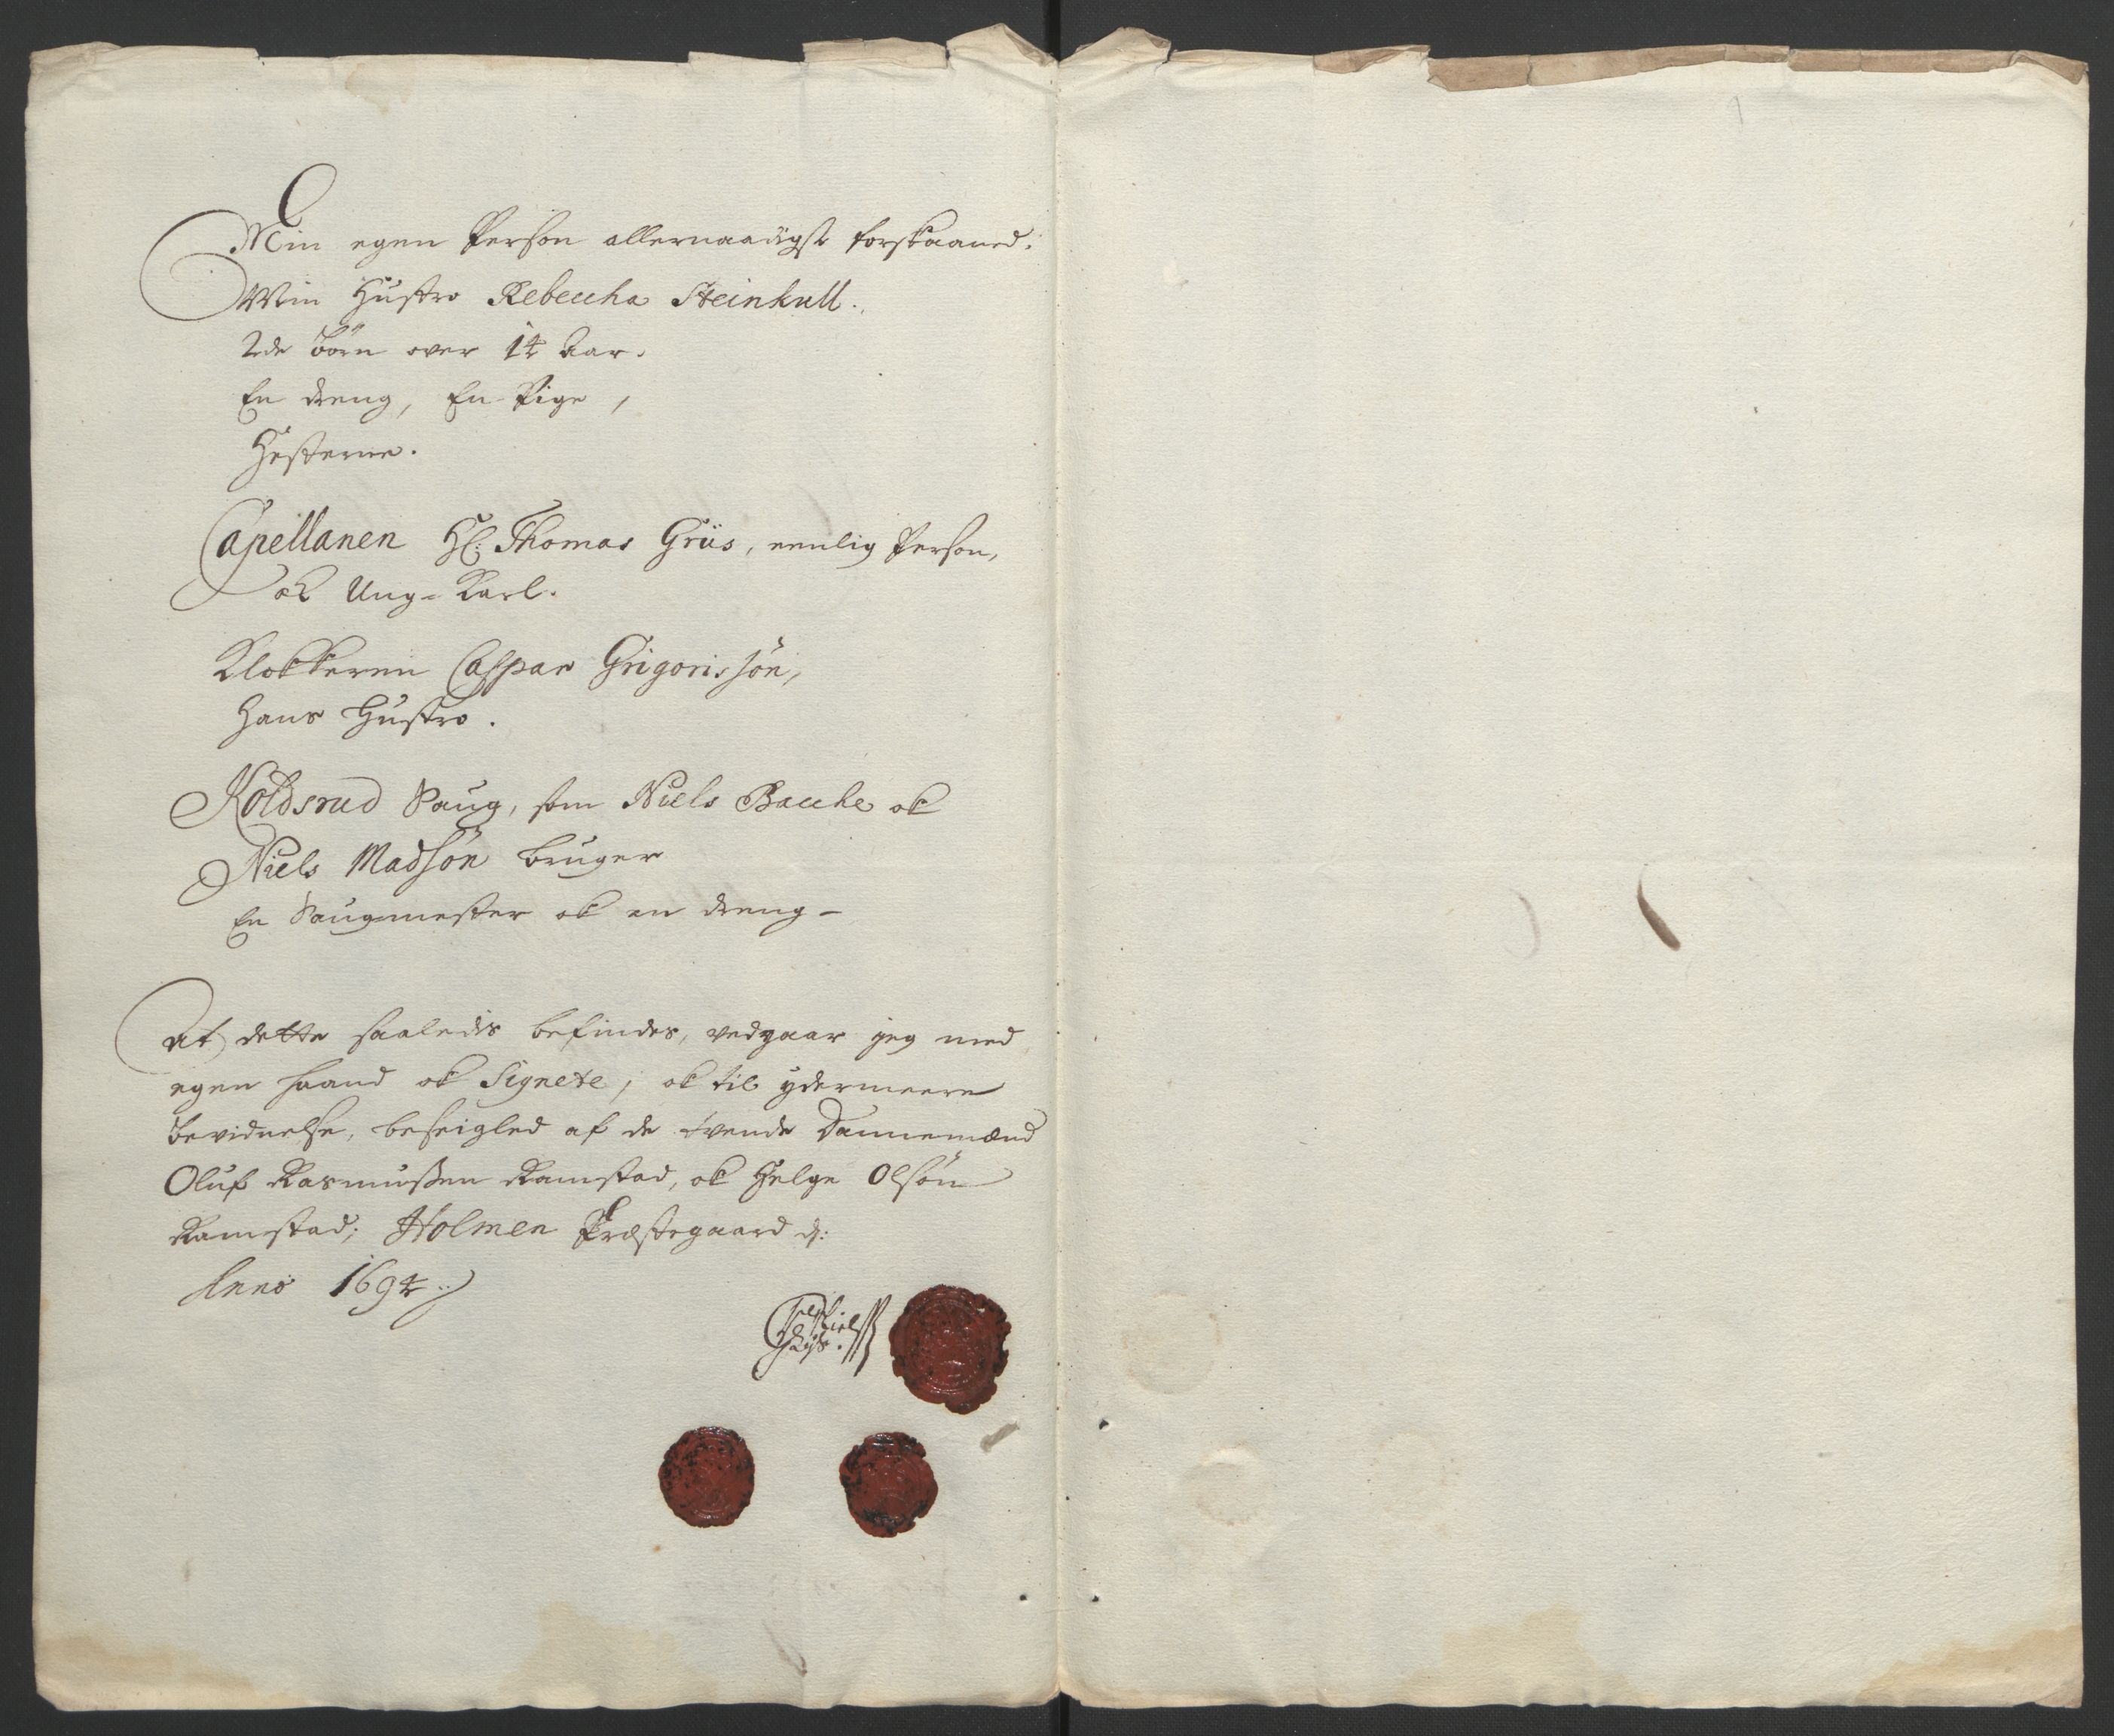 Min egen Person allernaadigst forskaaned.
Min Hustro Rebeccha Steinkull.
2de börn over 14 Aar.
En dreng, En Pige,
Hesterne.
Capellanen Hr: Thomas Grüs, eenlig Person,
ok Ung-Karl.
Klokkeren Casspar Grigorissön,
Hans Hustro.
Koldsrud Saug, som Niels Bacche ok
Niels Madsön bruger
En Saugmester ok en dreng-
At dette saaledis befindes, vedgaar jeg med
egen haand ok Signete, ok til ydermeere
bevidnelse, beseigled af de tvende Dannemænd
Oluf Rasmussen Ramstad, ok Helge Olsön
Ramstad; Holmen Præstegaard d:
Anno 1694